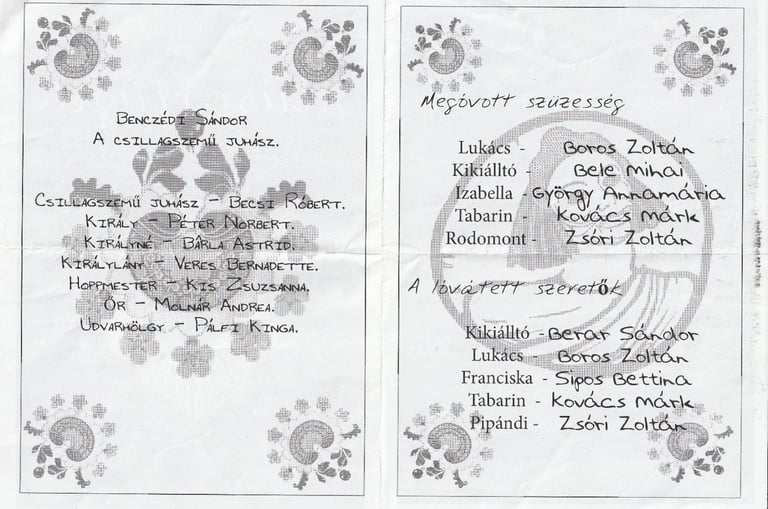 Benczédi Sándor
A csillagszemű juhász.
Csillagszemű juhász – Becsi Róbert.
Király – Péter Norbert.
Királyné – Bárla Astrid.
Királylány – Veres Bernadette.
Hoppmester – Kis Zsuzsanna.
Őr – Molnár Andrea.
Udvarhölgy – Pálfi Kinga.
Megóvott szüzesség
Lukács - Boros Zoltán
Kikiálltó - Bele Mihai
Izabella - György Annamária
Tabarin - Kovács Márk
Rodomont - Zsóri Zoltán
A lóvátett szeretők
Kikiálltó - Berar Sándor
Lukács - Boros Zoltán
Franciska - Sipos Bettina
Tabarin - Kovács Márk
Pipándi - Zsóri Zoltán